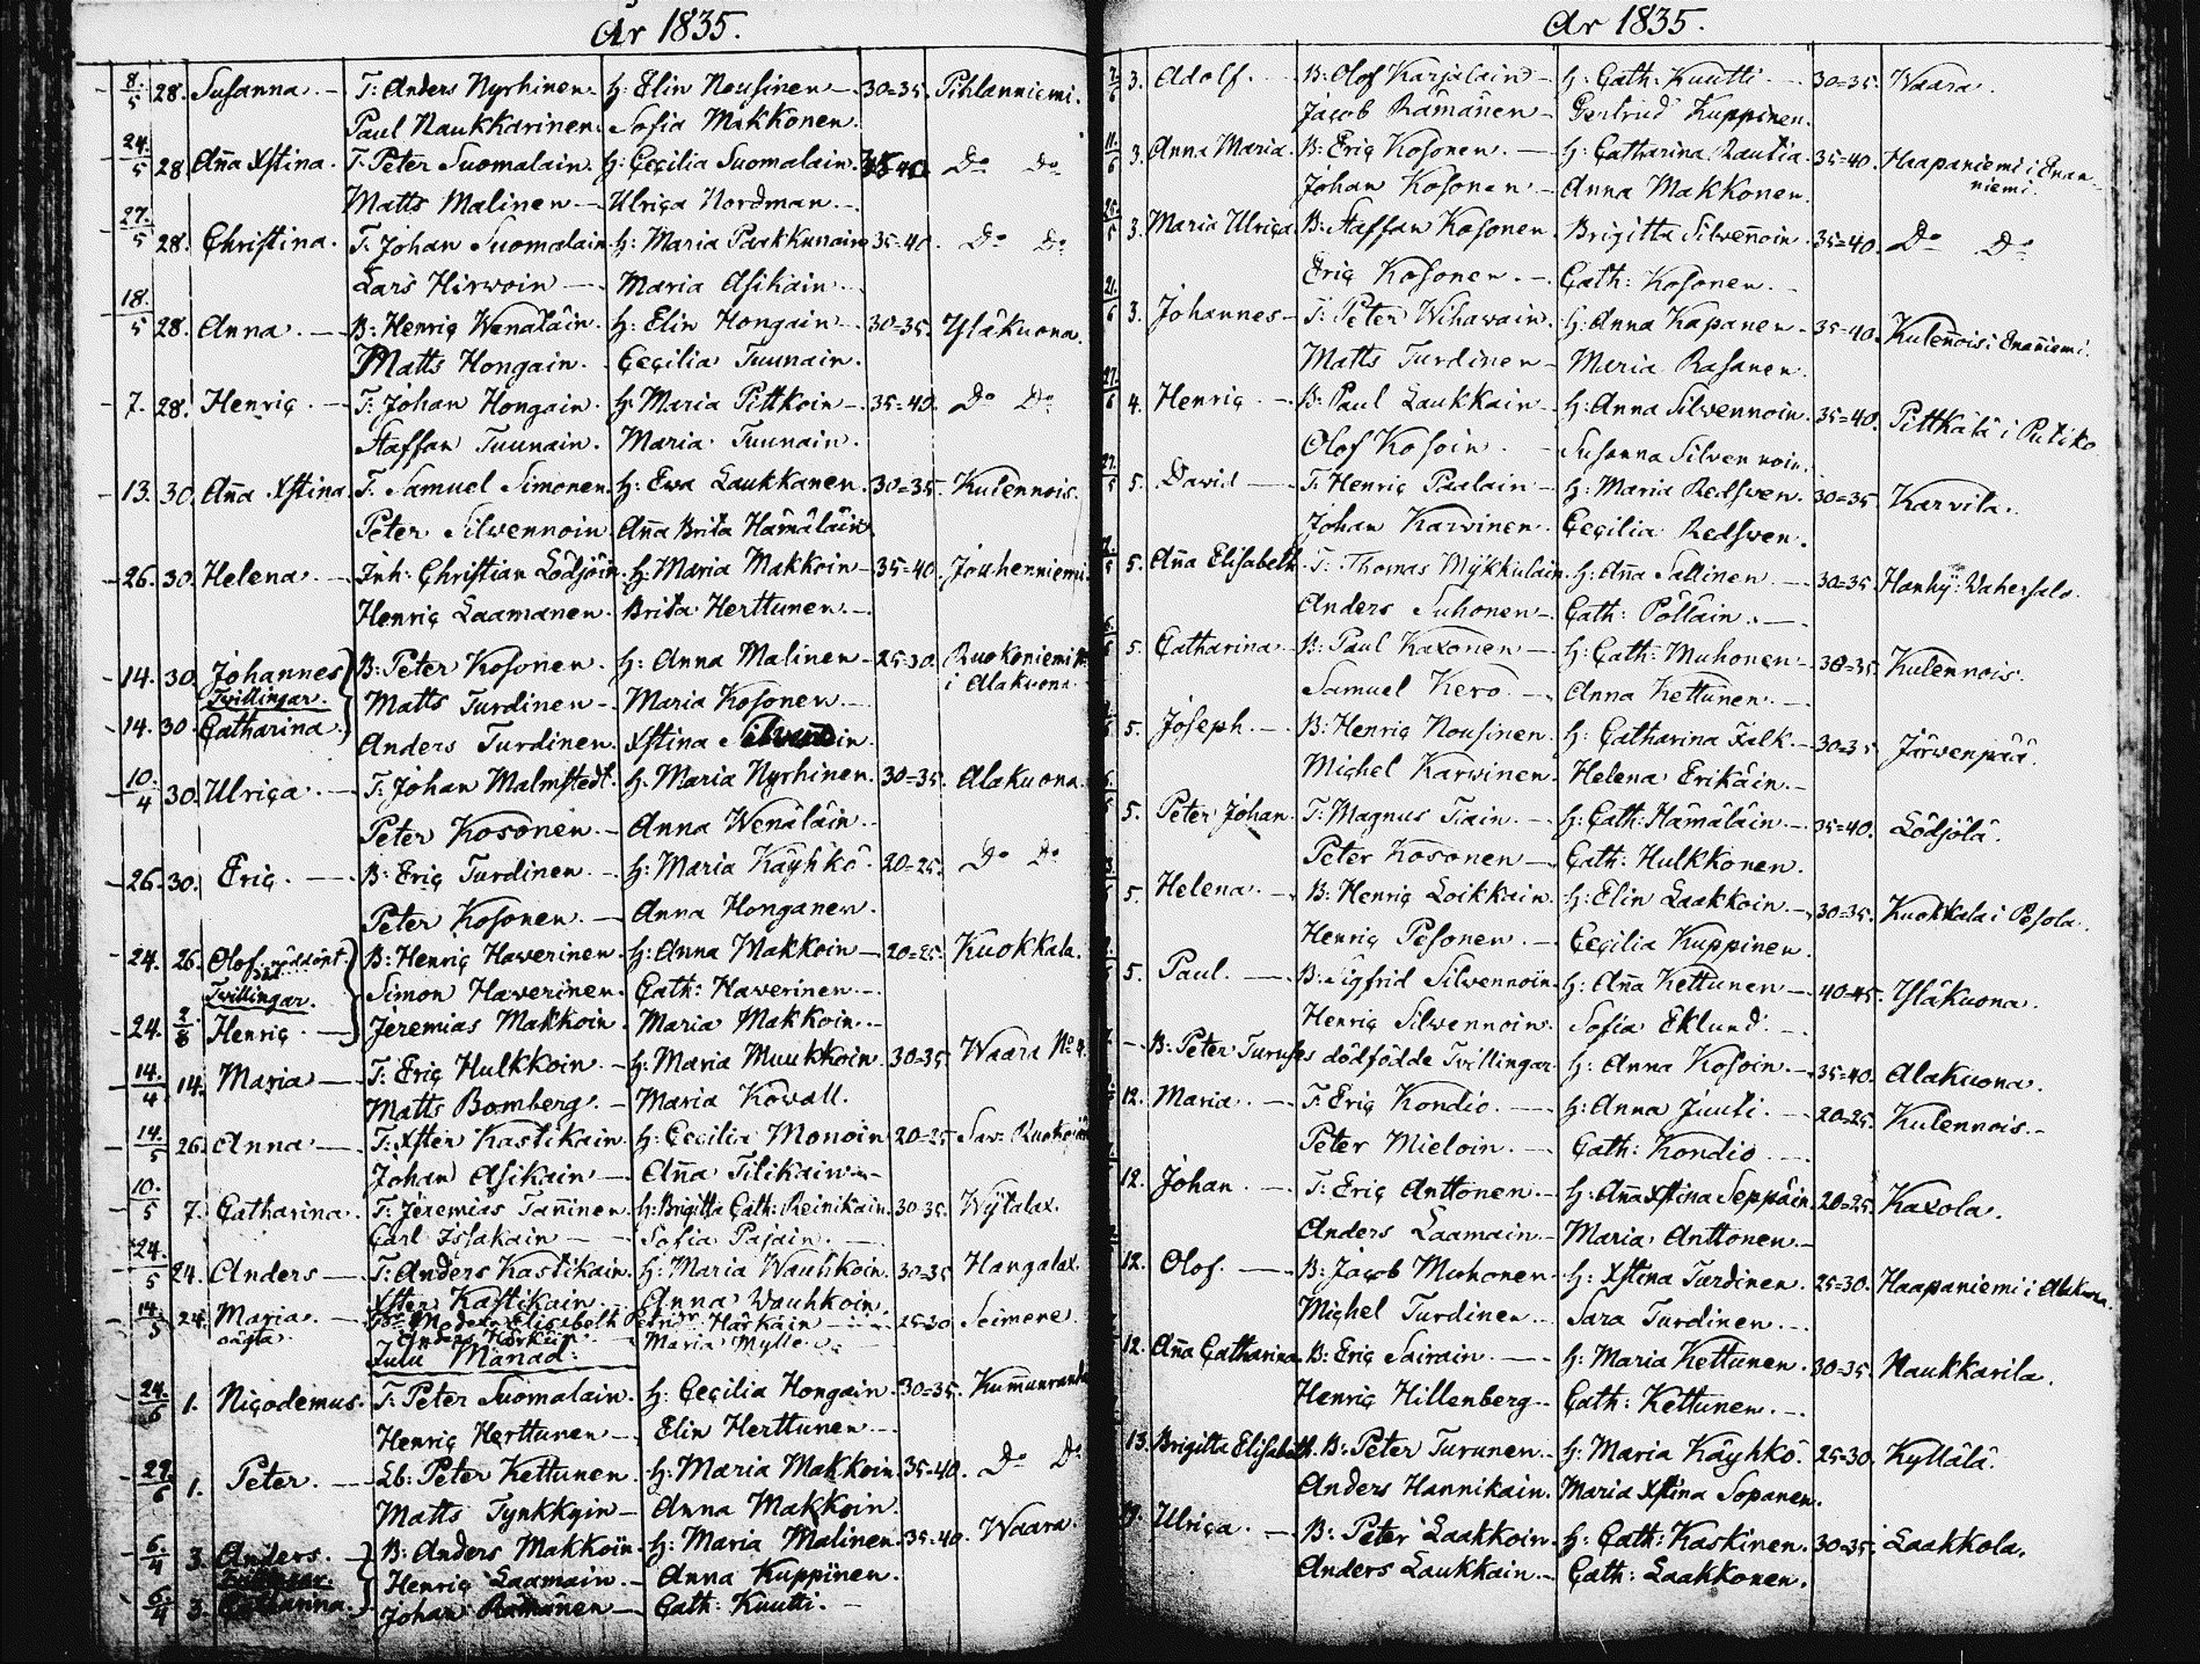 År 1835.
8/5 28. Susanna. T: Anders Nyrhinen. H: Elin Nousinen 30=35. Pihlanniemi.
Paul Naukkarinen. Sofia Makkonen.
24./5 28 Anna Xstina. T. Peter Suomalain. H: Cecilia Suomalain. 40. Do Do
Matts Malinen Ulrica Nordman.
27./5 28. Christina. T. Johan Suomalain. H: Maria Paakkunain 35=40. Do Do
Lars Hirwoin Maria Asikain.
18./5 28. Anna. B: Henric Wenäläin. H: Elin Hongain 30=35. Yläkuona.
Matts Hongain. Cecilia Tuunain.
7. 28. Henric. T: Johan Hongain. H: Maria Pittkoin 35=40. Do Do
Staffan Tuunain. Maria Tuunain.
13. 30. Anna Xstina. T. Samuel Simonen. H: Ewa Laukkanen. 30=35. Kulennois.
Peter Silwennoin. Anna Brita Hämäläin.
26. 30. Helena. Inh: Christian Lödjöin. H: Maria Makkoin 35=40. Jouhenniemi
Henric Laamanen. Brita Herttunen.
14. 30. Johannes B: Peter Kosonen. H: Anna Malinen 25=30. Ruokoniemi
Tvillingar. Matts Turdinen Maria Kosonen. i Alakuona.
14. 30. Catharina Anders Turdinen. Xstina
10./4 30. Ulrica. T: Johan Malmstedt. H: Maria Nyrhinen. 30=35. Alakuona.
Peter Kosonen. Anna Wenäläin.
26. 30. Eric. B: Eric Turdinen. H: Maria Käyhkö. 20=25. Do Do
Peter Kosonen. Anna Honganen.
24. 26. Olof. nöddöpt B: Henric Haverinen. H: Anna Makkoin 20=25. Kuokkala.
Tvillingar. Simon Haverinen. Cath: Haverinen.
24. Henric. Jeremias Makkoin. Maria Makkoin.
14./4 14. Maria T: Eric Hulkkoin. H: Maria Muukkoin. 30=35. Waara No 4.
Matts Bomberg. Maria Kowall.
14./5 26. Anna T: Xster Kastikain. H: Cecilia Monoin 20=25 Sav:
Johan Asikain Anna Tilikain
10./5 7. Catharina. T: Jeremias Tanninen. H: Brigitta Cath: Reinikain. 30=35. Wytalax.
Carl Issakain Sofia Pajain.
24./5 24. Anders T: Anders Kastikain. H: Maria Wauhkoin. 30=35 Hangalax.
Xster Kastikain. Anna Wauhkoin.
14./5 24. Maria. Modern Elisabeth Härkäin 25=30 Seimene.
oägta. Anders Härköin. Maria Mylle.
Julii Månad:
24./6 1. Nicodemus. T: Peter Suomalain. H: Cecilia Hongain. 30=35. Kummunranda
Henric Herttunen Elin Herttunen
29./6 1. Peter. Lb: Peter Kettunen. H: Maria Makkoin. 35=40. Do Do
Matts Tynkkyin Anna Makkoin.
6./4 3. Anders. B: Anders Makkoin. H: Maria Malinen. 35=40. Waara.
Henric Laamain. Anna Kuppinen.
6./4 3. Johan Rämänen Cath: Kuutti.
År 1835.
3. Adolf. B: Olof Karjalain H: Cath: Kuutti 30=35. Waara.
Jacob Rämänen Gertrud Kuppinen.
11./6 3. Anna Maria. B: Eric Kosonen. H: Catharina Rautia. 35=40. Haapaniemi i Enan-
Johan Kosonen Anna Makkonen. niemi.
3. Maria Ulrica. B: Staffan Kosonen. Brigitta Silwennoin. 35=40. Do Do
Eric Kosonen. Cath: Kosonen.
21./6 3. Johannes T: Peter Wihawain. H: Anna Kapanen 35=40. Kulennois i Enanniemi.
Matts Turdinen Maria Rasanen.
27./6 4. Henric. B: Paul Laukkain H: Anna Silwennoin. 35=40. Pittkälä i Putiko
Olof Kosoin. Susanna Silwennoin.
5. David T: Henric Paalain H: Maria Redswen. 30=35 Karvila.
Johan Karvinen. Cecilia Redswen.
5. Anna Elisabeth. T: Thomas Mykkulain. H: Anna Sallinen 30=35. Hanhy: Wahersalo.
Anders Suhonen Cath: Pölläin.
5. Catharina B: Paul Kaxonen H: Cath: Muhonen 30=35. Kulennois.
Samuel Kero. Anna Kettunen.
5. Joseph. B: Henric Nousinen. H: Catharina Falk. 30=35 Järwenpää.
Michel Karvinen. Helena Erikäin.
5. Peter Johan. T: Magnus Tiain. H: Cath: Hämäläin. 35=40. Lödjölä.
Peter Kosonen Cath: Hulkkonen.
5. Helena. B: Henric Loikkain. H: Elin Laakkoin. 30=35. Kuokkala i Pesola.
Henric Pesonen. Cecilia Kuppinen.
5. Paul. B: Sigfrid Silwennoin H: Anna Kettunen 40=45. Yläkuona.
Henric Silwennoin. Sofia Eklund.
B: Peter Turuses dödfödde Tvillingar. H: Anna Kosoin. 35=40. Alakuona.
12. Maria. T: Eric Kondio. H: Anna Juuti. 20=25. Kulennois.
Peter Mieloin. Cath: Kondio
12. Johan. T: Eric Anttonen. H: Anna Xstina Seppäin. 20=25. Kaxola.
Anders Laamain. Maria Anttonen.
12. Olof. B: Jacob Muhonen H: Xstina Turdinen. 25=30. Haapaniemi i Alakuona.
Michel Turdinen. Sara Turdinen.
12. Anna Catharina. B: Eric Sairain. H: Maria Kettunen. 30=35 Naukkarila.
Henric Hillenberg. Cath: Kettunen.
13. Brigitta Elisabeth. B: Peter Turunen. H: Maria Käyhkö. 25=30. Kyllälä.
Anders Hannikain. Maria Xstina Sopanen.
19. Ulrica. B: Peter Laakkoin. H: Cath: Kaskinen. 30=35. Laakkola.
Anders Laukkain. Cath: Laakkonen.